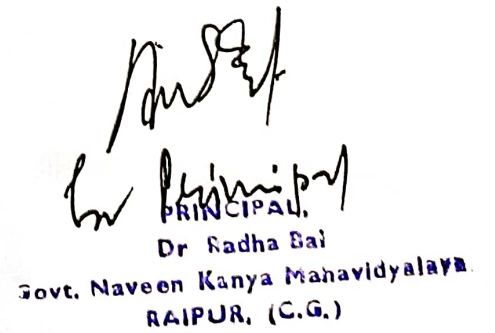 PRINCIPAL,
Dr Radha Bai
Govt. Naveen Kanya Mahavidyalaya
RAIPUR, (C.G.)